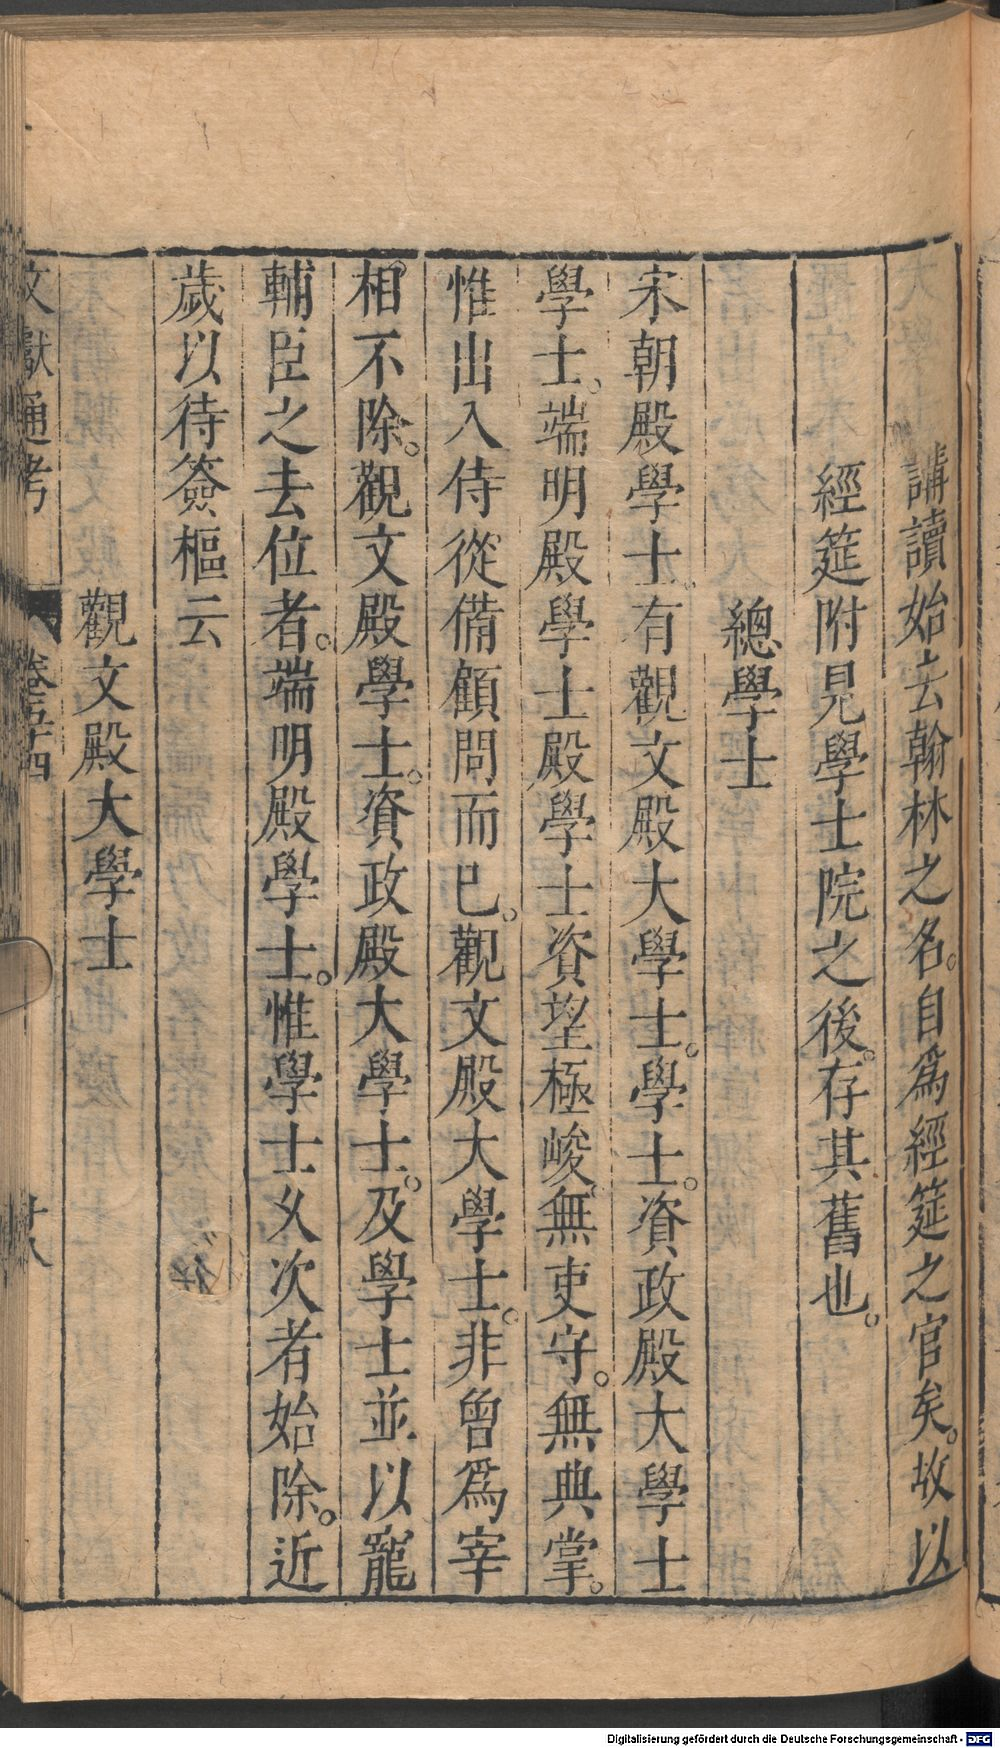 講讀始去翰林之名。自爲經筵之官矣。故以
經筵附見學士院之後。存其舊也。
總學士
宋朝殿學士。有觀文殿大學士。學士。資政殿大學士
學士。端明殿學士殿學士資望極峻。無吏守。無典掌。
惟出入侍從備顧問而已。觀文殿大學士。非曾爲宰
相不除。觀文殿學士。資政殿大學士。及學士並以寵
輔臣之去位者。端明殿學士。惟學士乆次者始除。近
歲以待簽樞云
觀文殿大學士
文獻通考
卷五十四
十八
Digitalisierung gefördert durch die Deutsche Forschungsgemeinschaft - DFG